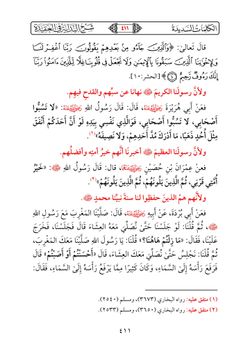 الكلمات السديدة
٤١١
شرح البداية في العقيدة
قال تعالى: ﴿وَالَّذِينَ جَاءُو مِنْ بَعْدِهِمْ يَقُولُونَ رَبَّنَا اغْفِرْ لَنَا
وَلِإِخْوَانِنَا الَّذِينَ سَبَقُونَا بِالْإِيمَانِ وَلَا تَجْعَلْ فِي قُلُوبِنَا غِلًّا لِلَّذِينَ ءَامَنُوا رَبَّنَا
إِنَّكَ رَءُوفٌ رَحِيمٌ ۝﴾ [الحشر: ١٠].
ولأنَّ رسولَنا الكريمَ ﷺ نهانا عن سبِّهم والقدحِ فيهم.
فعنْ أبي هُرَيْرَةَ رضي الله عنه، قالَ: قَالَ رَسُولُ اللهِ ﷺ: «لَا تَسُبُّوا
أَصْحَابِي، لَا تَسُبُّوا أَصْحَابِي، فَوَالَّذِي نَفْسِي بِيَدِهِ لَوْ أَنَّ أَحَدَكُمْ أَنْفَقَ
مِثْلَ أُحُدٍ ذَهَبًا، مَا أَدْرَكَ مُدَّ أَحَدِهِمْ، وَلَا نَصِيفَهُ»(١).
ولأنَّ رسولَنا العظيمَ ﷺ أخبرَنا أنَّهم خيرُ أمتِه وأفضلُهم.
فعَنْ عِمْرَانَ بْنِ حُصَيْنٍ رضي الله عنه، قَالَ: قَالَ رَسُولُ اللهِ ﷺ: «خَيْرُ
أُمَّتِي قَرْنِي، ثُمَّ الَّذِينَ يَلُونَهُمْ، ثُمَّ الَّذِينَ يَلُونَهُمْ»(٢).
ولأنَّهم همُ الذينَ حفظوا لنا سنةَ نبيِّنا محمدٍ ﷺ.
فعَنْ أَبِي بُرْدَةَ، عَنْ أَبِيهِ رضي الله عنه، قَالَ: صَلَّيْنَا المَغْرِبَ مَعَ رَسُولِ اللهِ
ﷺ، ثُمَّ قُلْنَا: لَوْ جَلَسْنَا حَتَّى نُصَلِّيَ مَعَهُ العِشَاءَ قَالَ فَجَلَسْنَا، فَخَرَجَ
عَلَيْنَا، فَقَالَ: «مَا زِلْتُمْ هَاهُنَا؟» قُلْنَا: يَا رَسُولَ اللهِ صَلَّيْنَا مَعَكَ المَغْرِبَ،
ثُمَّ قُلْنَا: نَجْلِسُ حَتَّى نُصَلِّيَ مَعَكَ العِشَاءَ، قَالَ: «أَحْسَنْتُمْ أَوْ أَصَبْتُمْ» قَالَ
فَرَفَعَ رَأْسَهُ إِلَى السَّمَاءِ، وَكَانَ كَثِيرًا مِمَّا يَرْفَعُ رَأْسَهُ إِلَى السَّمَاءِ، فَقَالَ:
(١) متفق عليه: رواه البخاري (٣٦٧٣)، ومسلم (٢٥٤٠).
(٢) متفق عليه: رواه البخاري (٣٦٥٠)، ومسلم (٢٥٣٣).
٤١١